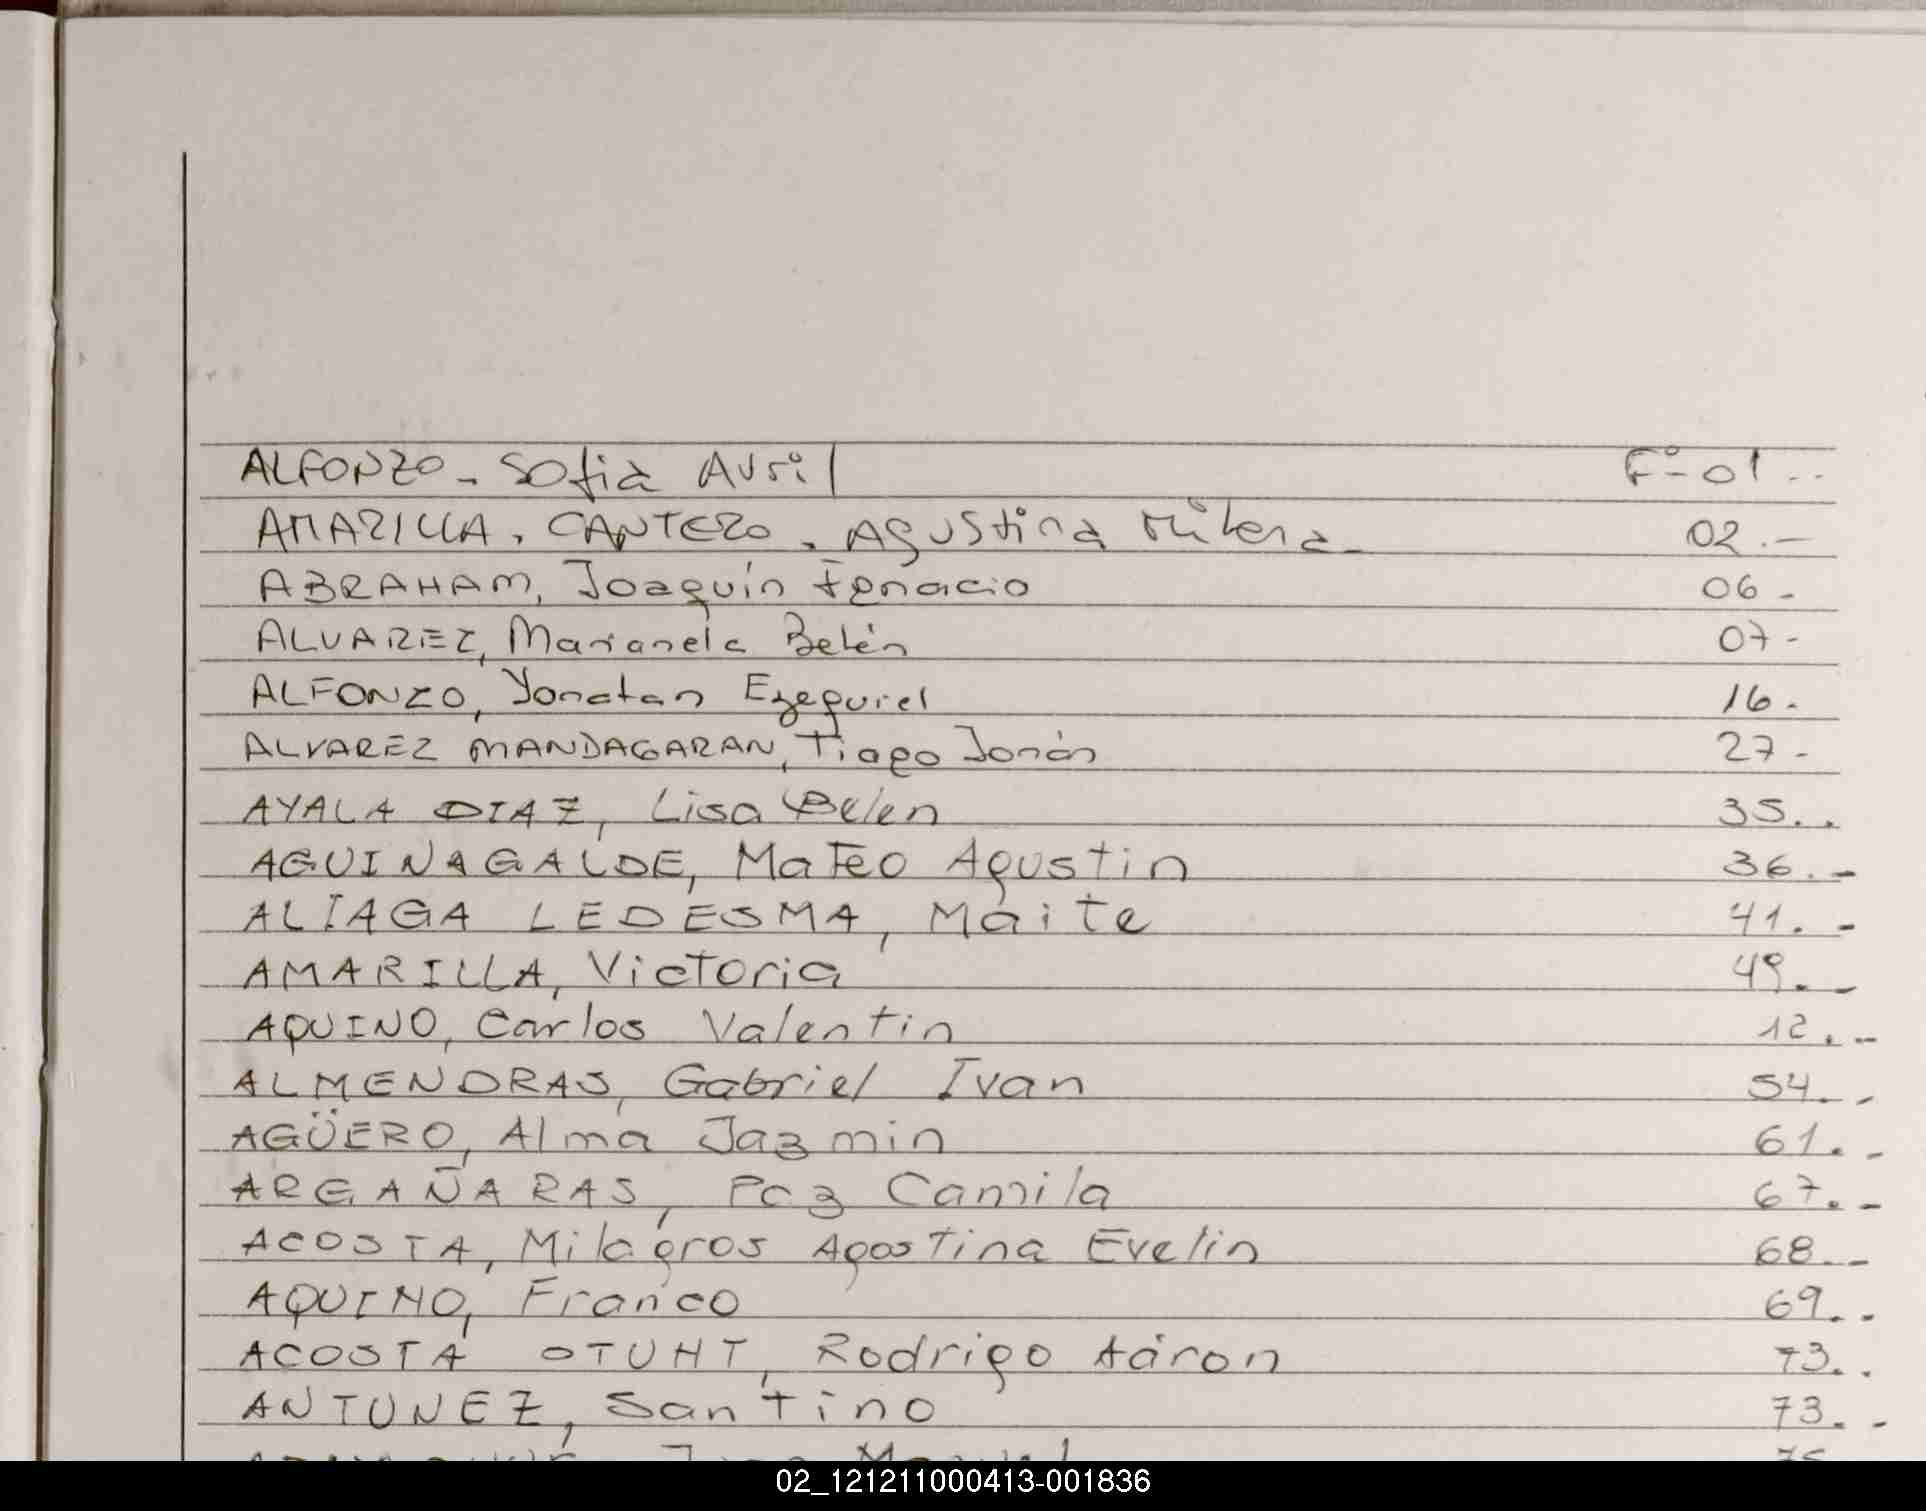 ALFONZO - Sofia Avril Fº- 01 --
AMARILLA. CANTERO. Agustina Milena- 02.-
ABRAHAM, Joaquín Ignacio 06-
ALVAREZ, Marianela Belén 07-
ALFONZO, Yonatan Ezequiel 16.
ALVAREZ MANDAGARAN, Tiago Jonás 27-
AYALA DIAZ, Lisa Belen 35..
AGUINAGALDE, Mateo Agustin 36.-
ALIAGA LEDESMA, Maite 41.-
AMARILLA, Victoria 49.-
AQUINO, Carlos Valentin 12.-
ALMENDRAS, Gabriel Ivan 54.-
AGÜERO, Alma Jazmin 61.-
ARGAÑARAS, Paz Camila 67.-
ACOSTA, Milagros Agostina Evelin 68.-
AQUINO, Franco 69..
ACOSTA OTUHT, Rodrigo Aáron 73..
ANTUNEZ, Santino 73.-
02_121211000413-001836